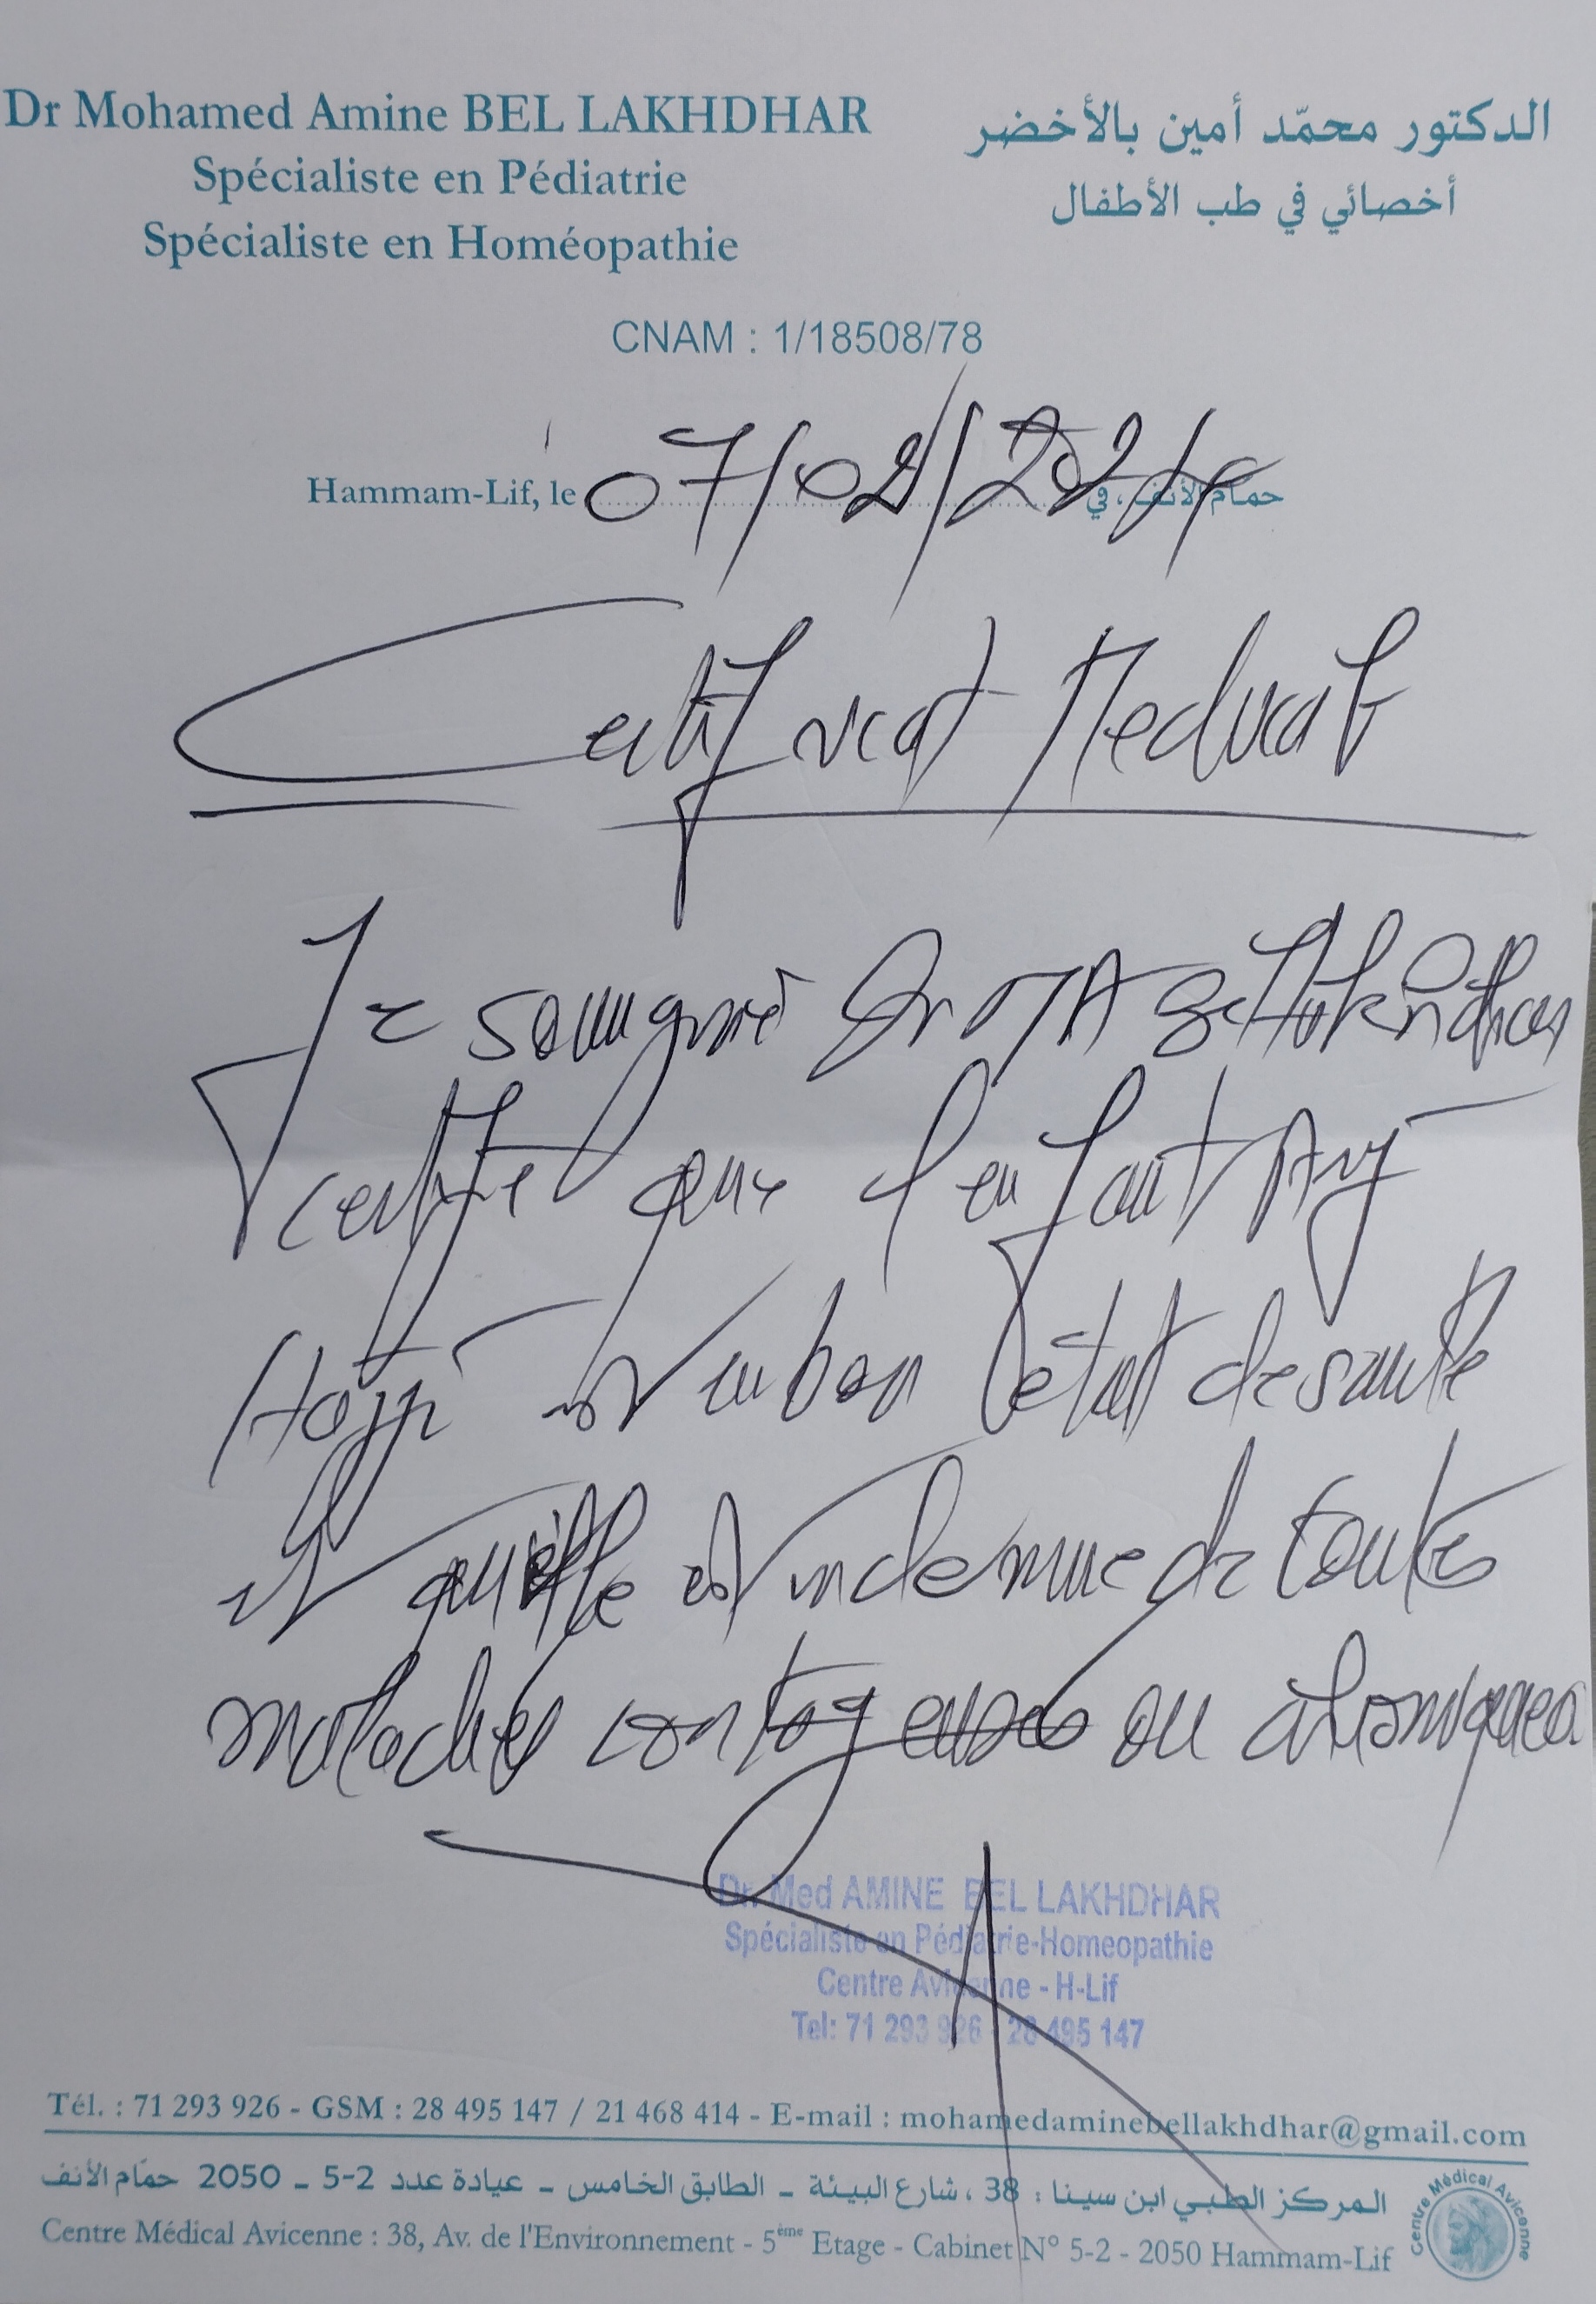 Dr Mohamed Amine BEL LAKHDHAR
Spécialiste en Pédiatrie
Spécialiste en Homéopathie
الدكتور محمّد أمين بالأخضر
أخصائي في طب الأطفال
CNAM : 1/18508/78
Hammam-Lif, le 07/02/2024 حمام الأنف، في
Certificat Medical
Je soussigné Dr MA Bel Lakhdhar
certifie que l'enfant
Hajji est en bon état de santé
et qu'elle est indemne de toutes
maladies contagieuses ou chroniques
Dr. Med AMINE BEL LAKHDHAR
Spécialiste en Pédiatrie-Homeopathie
Centre Avicenne - H-Lif
Tel: 71 293 926 - 28 495 147
Tél. : 71 293 926 - GSM : 28 495 147 / 21 468 414 - E-mail : mohamedaminebellakhdhar@gmail.com
المركز الطبي ابن سينا : 38 ، شارع البيئة - الطابق الخامس - عيادة عدد 2-5 - 2050 حمّام الأنف
Centre Médical Avicenne : 38, Av. de l'Environnement - 5ème Etage - Cabinet N° 5-2 - 2050 Hammam-Lif
Centre Médical Avicenne